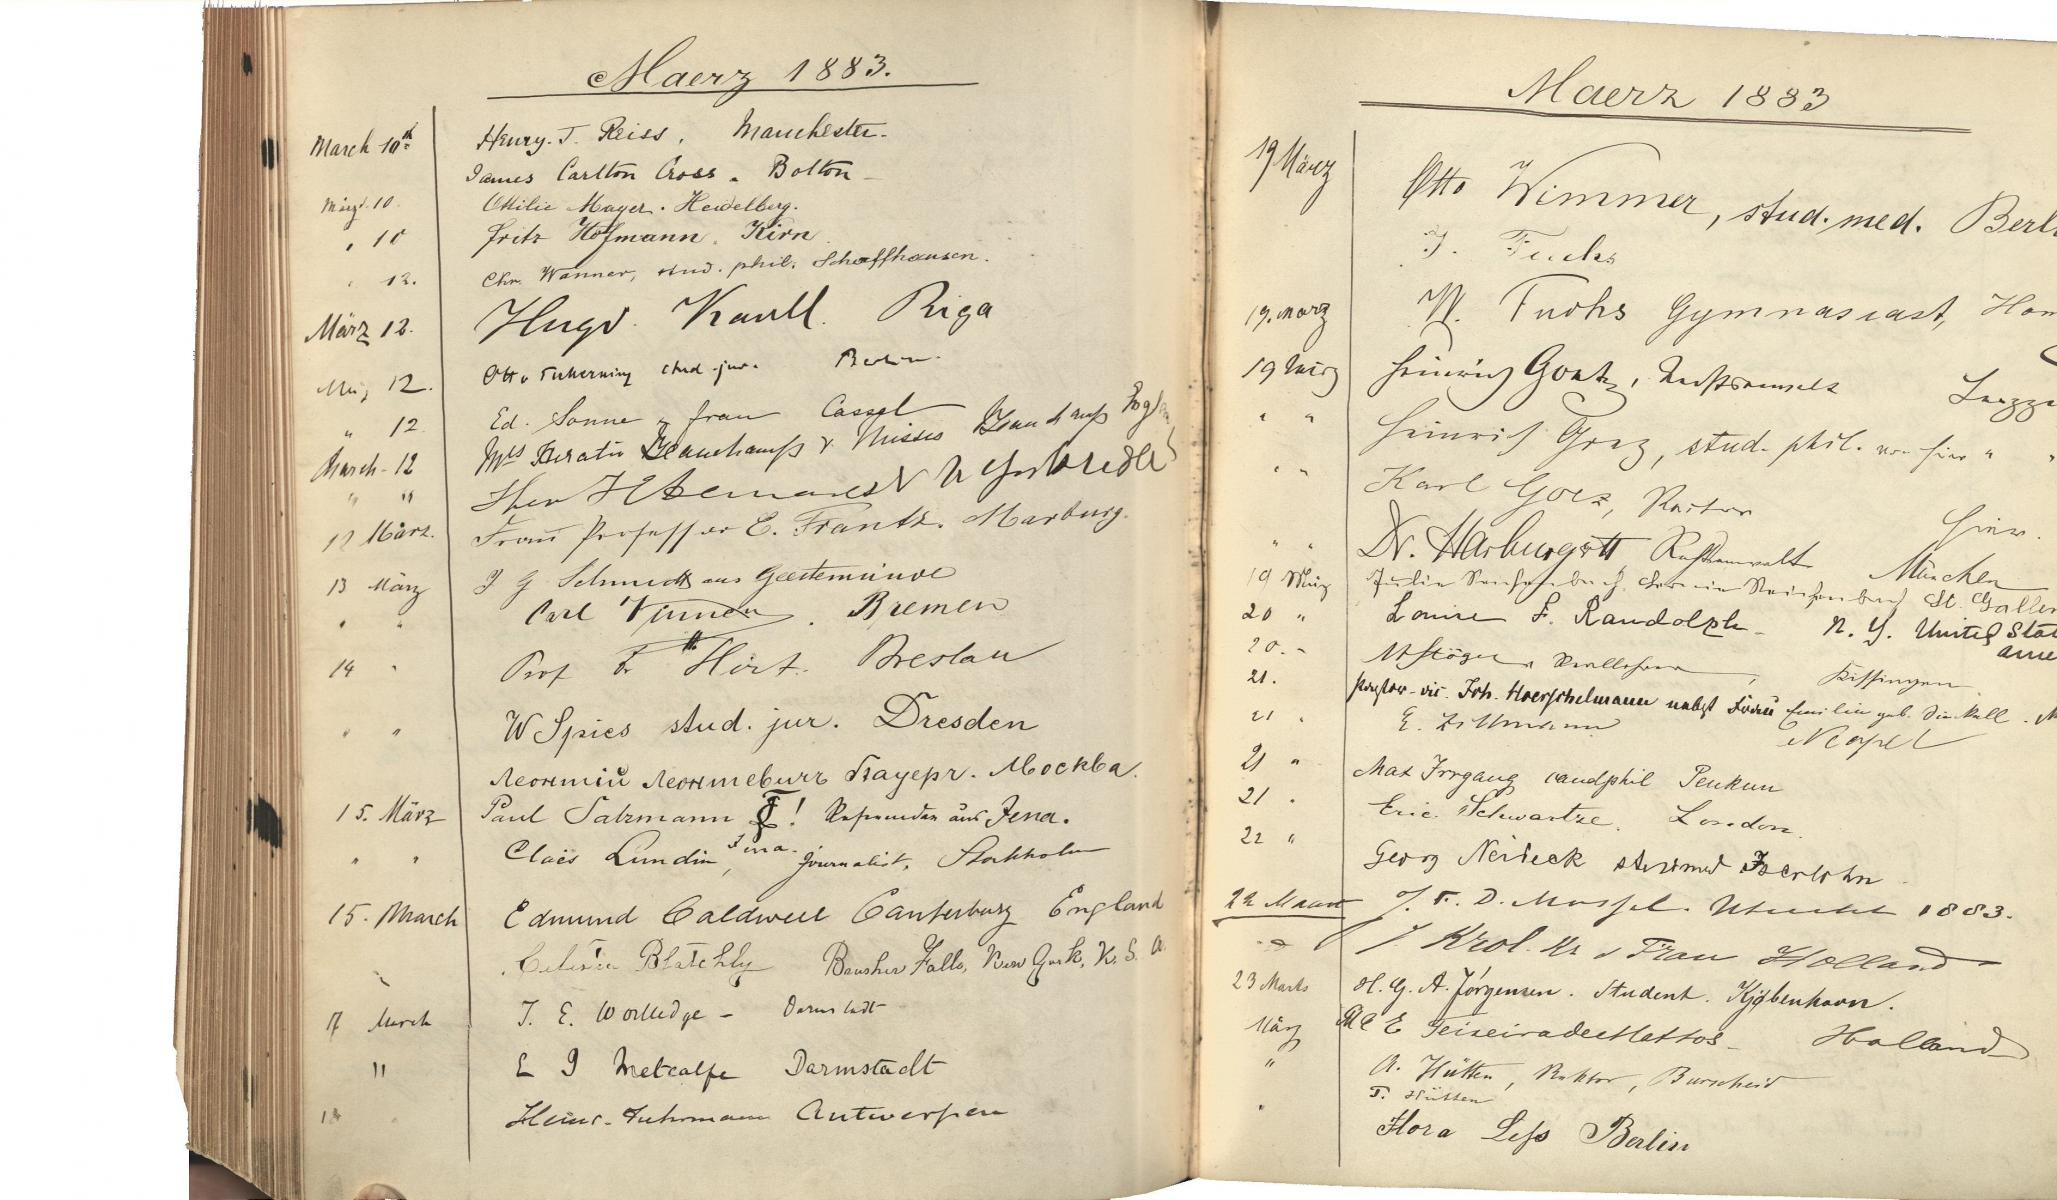 Maerz 1883.
March 10th Henry. T. Reiss, Manchester.
James Carlton Cross. Bolton
März. 10. Ottilie Mayer. Heidelberg.
" 10 Fritz Hofmann. Kirn
" 12. Chr. Wanner, stud. phil. Schaffhausen.
März 12. Hugo Riga
März 12. Otto stud. jur. Berlin.
" 12 Ed. Sonne u. Frau Cassel
March 12 Mrs Horatio Beauchamp & Misses Beauchamp England
" "
12 März. Frau Professor E. Frantz. Marburg.
13 März J G Schmidt aus Geestemünde
" " Carl Vinnen. Bremen
14 " Prof Dr Hirt. Breslau
" " W Spies stud. jur. Dresden
Леонтій Леонтьевичъ Москва.
15. März Paul Salzmann ! Referendar aus Jena.
Jena.
" " Claës Lundin, journalist, Stockholm
15. March Edmund Caldwell Canterbury England
Blatchly Falls, New York, U. S. A.
17 March T. E. Worlledge - Darmstadt
" E J Metcalfe Darmstadt
18 " Heinr. Fuhrmann Antwerpen
Maerz 1883
19 März Otto Wimmer, stud. med. Berl
J. Fuchs
19. März W. Fuchs Gymnasiast, Hom
19 März Heinrich Goetz, Rechtsanwalt
" " Heinrich Goez, stud. phil. von hier " "
" " Karl Goez, Rector hier.
" " Dr. Harburger Rechtsanwalt München
19 März Reichenbach Reichenbach St. Gallen
20 " Louise F. Randolph - N. Y. United Stat
Ame
20. " Kissingen
21. Pastor-vic. Joh. Hoerschelmann nebst Frau geb.
21 " E. Zillmann Neapel
21 " Max Irrgang cand phil Penkun
21 " Eric Schwartze. London.
22 " Georg Neideck stud med Iserlohn
22 Maart J. F. D. Utrecht 1883.
J Krol. Hr & Frau Holland
23 Marts H. G. A. Jørgensen. Student. Kjøbenhavn.
März E Teixeira de Mattos Holland
" A. Hütten, Rektor, Burscheid
F. Hütten
" Flora Leſs Berlin